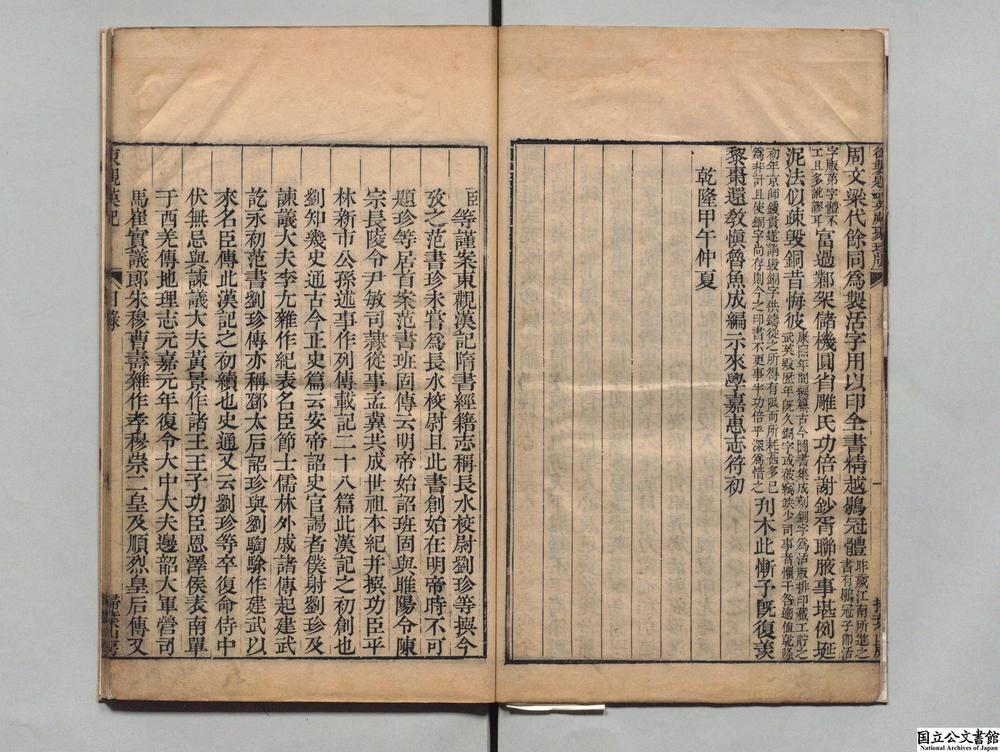 周文梁代餘同爲製活字用以印全書精越鶡冠體昨歲江南所進之
書有鶡冠子卽活
字版第字體不
工且多訛謬耳富過鄴架儲機圓省雕氏功倍謝鈔胥聯腋事堪例埏
泥法似疎毀銅昔悔彼康熙年間編纂古今圖書集成刻銅字爲活版排印蕆工貯之
武英殿歷年旣久銅字或被竊缺少司事者懼干咎適値乾隆
初年京師錢貴遂請毀銅字供鑄從之所得有限而所耗甚多已
爲非計且使銅字尚存則今之印書不更事半功倍乎深爲惜之刋木此慚予旣復羨
黎棗還敎愼魯魚成編示來學嘉惠志符初
乾隆甲午仲夏
東觀漢記
目錄
臣等謹案東觀漢記隋書經籍志稱長水校尉劉珍等撰今
攷之范書珍未嘗爲長水校尉且此書創始在明帝時不可
題珍等居首案范書班固傳云明帝始詔班固與睢陽令陳
宗長陵令尹敏司隸從事孟冀共成世祖本紀并撰功臣平
林新市公孫述事作列傳載記二十八篇此漢記之初創也
劉知幾史通古今正史篇云安帝詔史官謁者僕射劉珍及
諫議大夫李尤雜作紀表名臣節士儒林外戚諸傳起建武
訖永初范書劉珍傳亦稱鄧太后詔珍與劉騊駼作建武以
來名臣傳此漢記之初續也史通又云劉珍等卒復命侍中
伏無忌與諫議大夫黃景作諸王王子功臣恩澤侯表南單
于西羌傳地理志元嘉元年復令大中大夫邊韶大軍營司
馬崔寔議郎朱穆曹壽雜作孝穆崇二皇及順烈皇后傳又
国立公文書館
National Archives of Japan